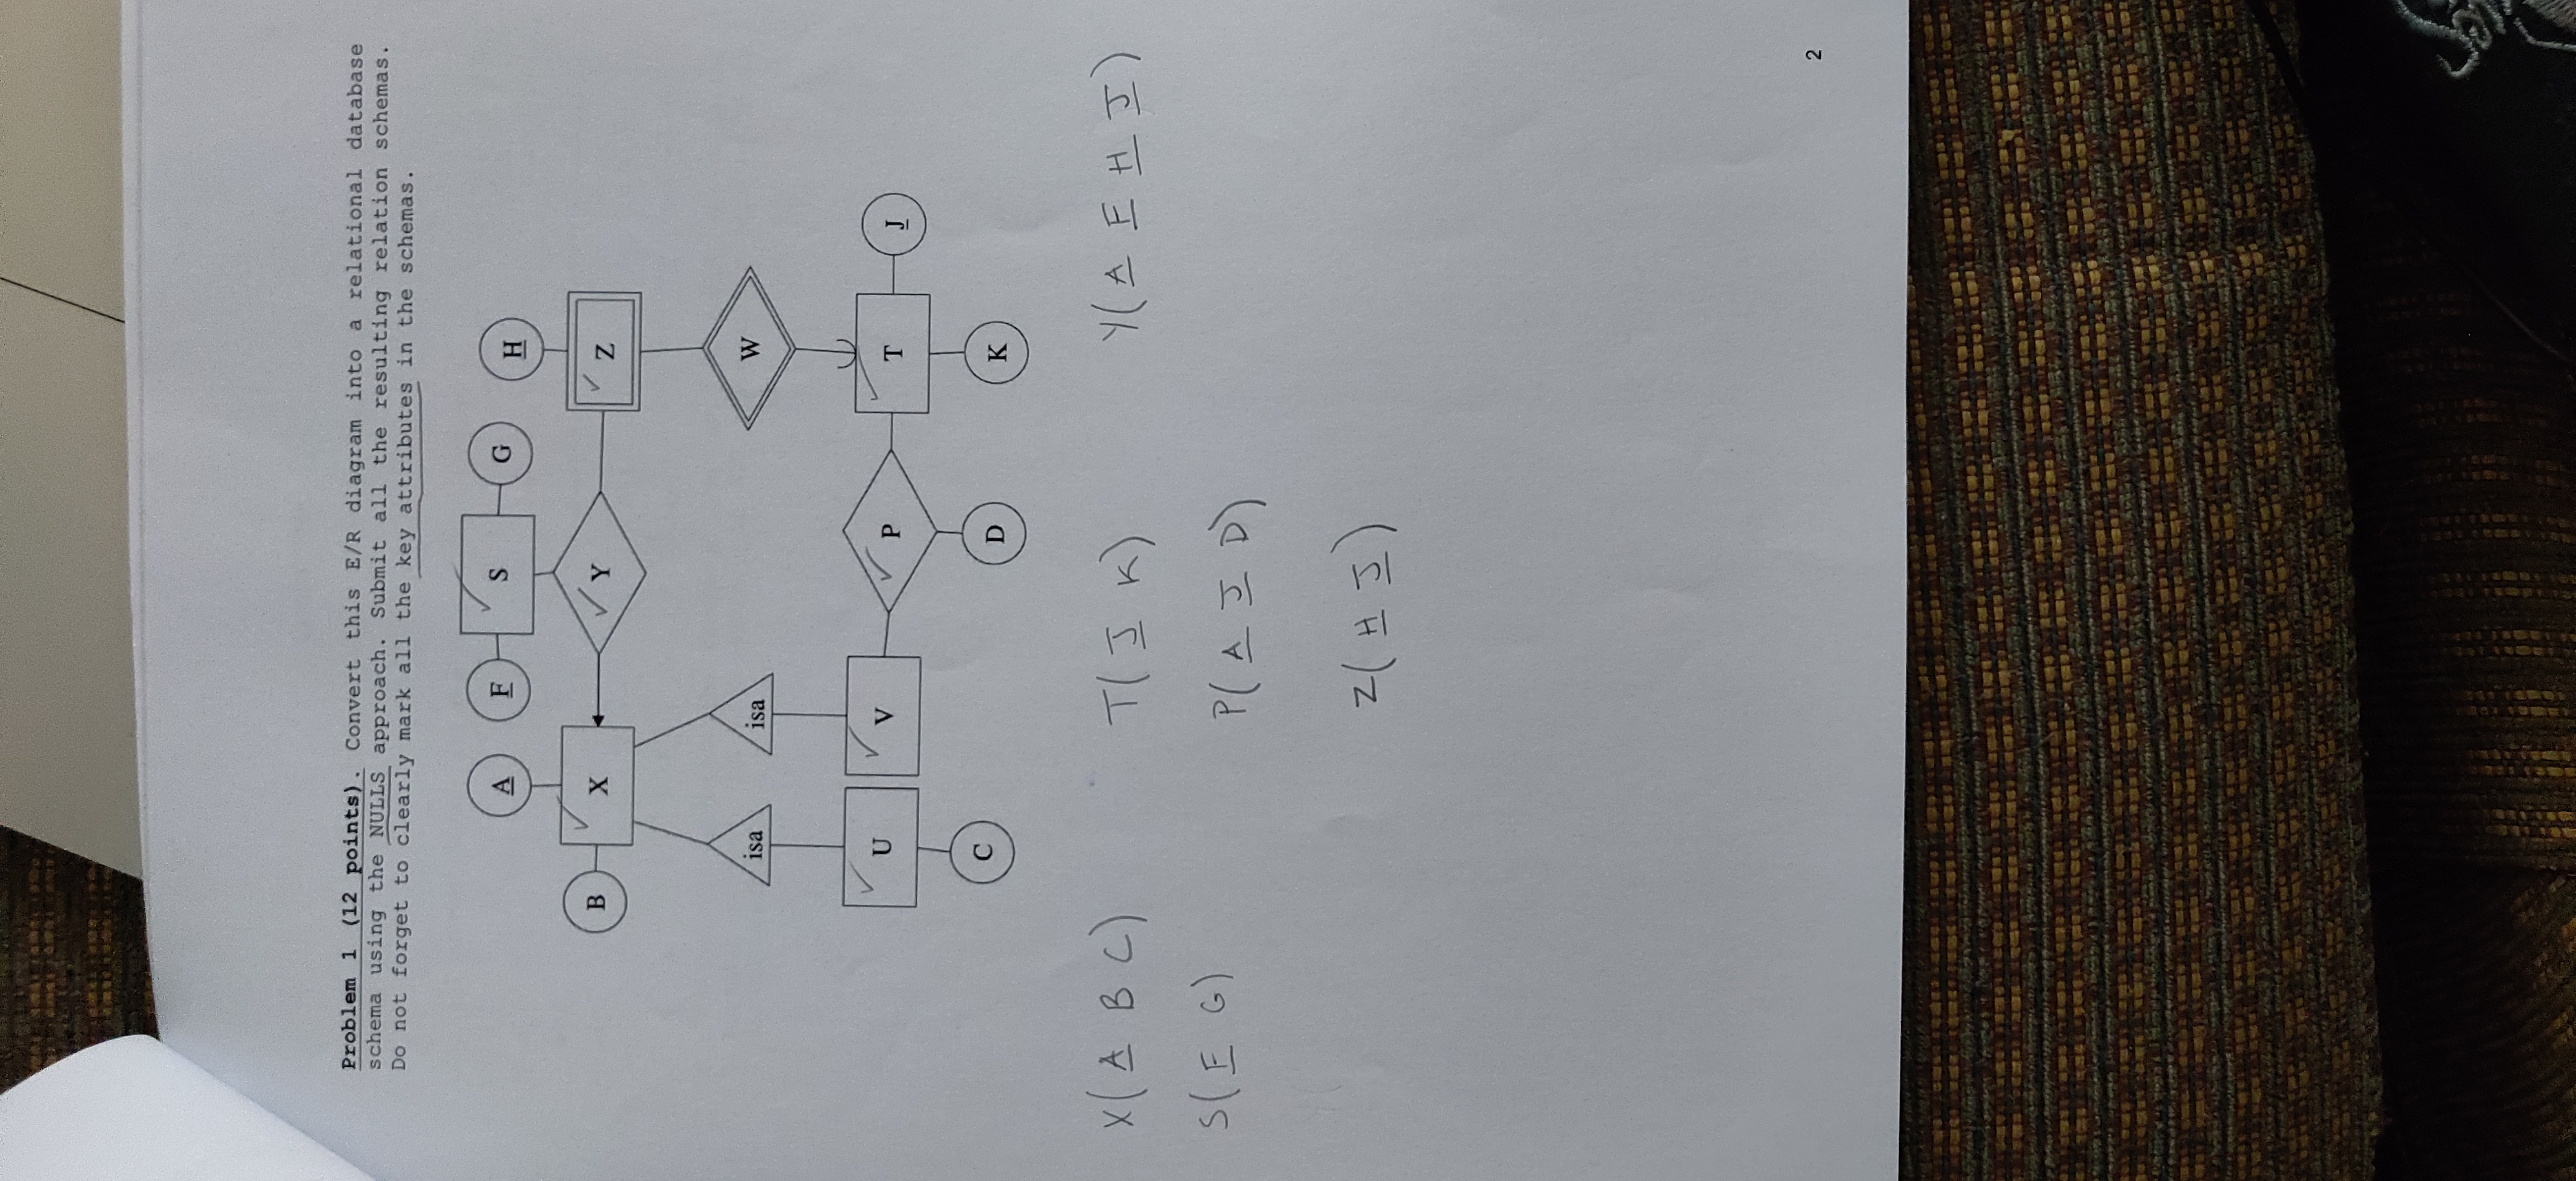 Problem 1 (12 points). Convert this E/R diagram into a relational database
schema using the NULLS approach. Submit all the resulting relation schemas.
Do not forget to clearly mark all the key attributes in the schemas.
A F S G H
B X Y Z
isa isa W
U V P T J
C D K
X(A B C) T(J K) Y(A F H J)
S(F G) P(A J D)
Z(H J)
2